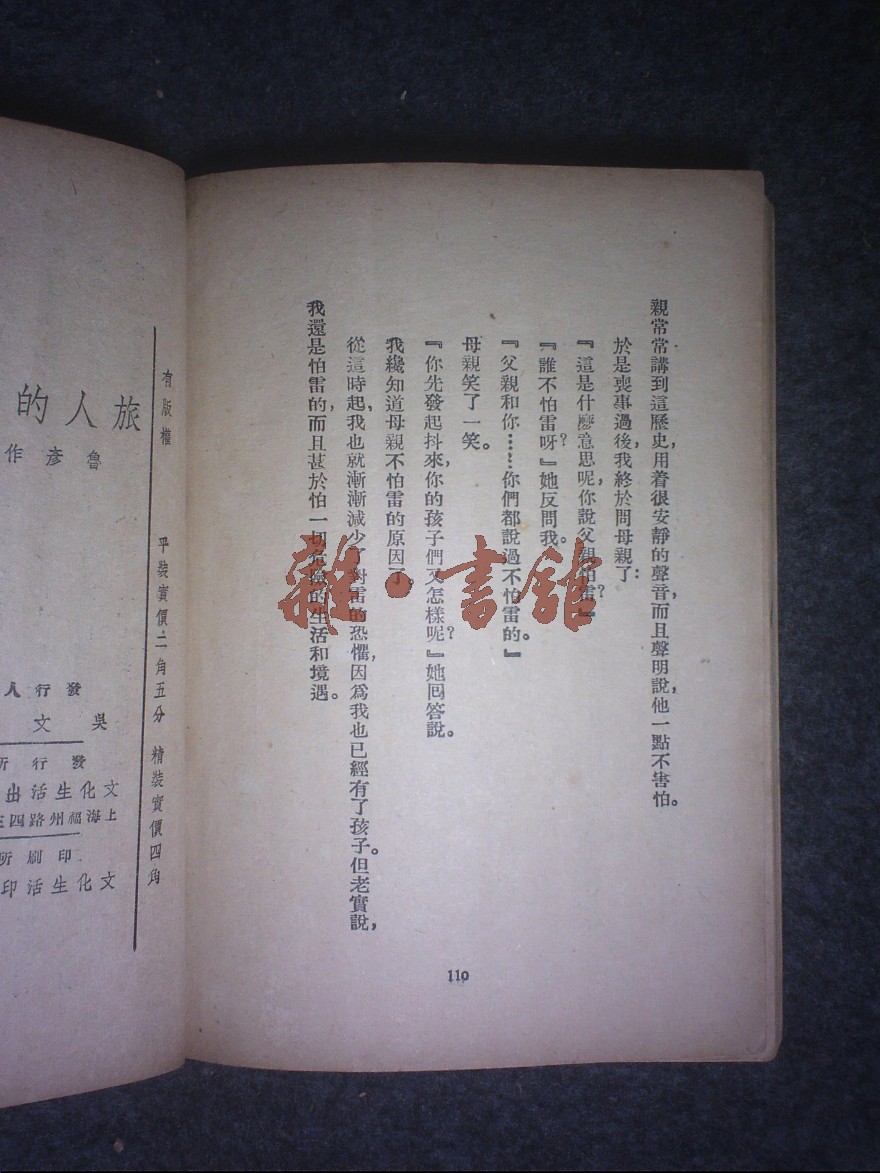 親常常講到這歷史，用着很安靜的聲音，而且聲明說，他一點不害怕。
於是喪事過後，我終於問母親了：
『這是什麼意思呢，你說父親怕雷？』
『誰不怕雷呀？』她反問我。
『父親和你……你們都說過不怕雷的。』
母親笑了一笑。
『你先發起抖來，你的孩子們又怎樣呢？』她回答說。
我纔知道母親不怕雷的原因了。
從這時起，我也就漸漸減少了對雷的恐懼，因爲我也已經有了孩子。但老實說，
我還是怕雷的，而且甚於怕一切危險的生活和境遇。
110
雜·書館
有版權 平裝實價二角五分 精裝實價四角
旅人的
魯彥作
發行人
吳文
發行所
文化生活出
上海福州路四
印刷所
文化生活印